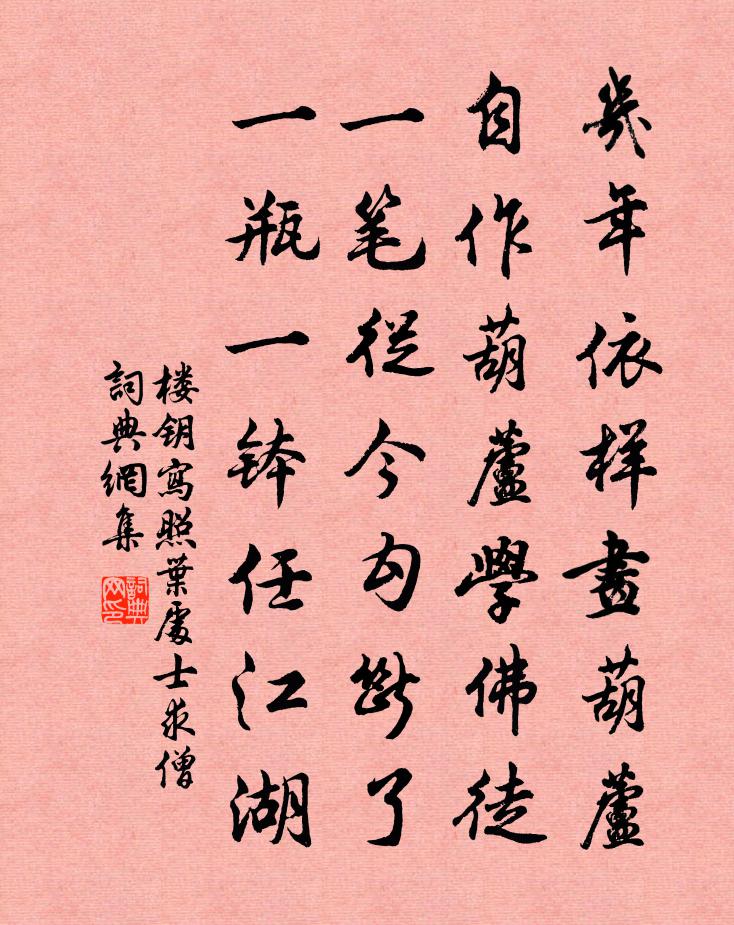 幾年依样畫葫蘆
自作葫蘆學佛徒
一笔從今勾斷了
一瓶一钵任江湖
楼钥寫照葉處士求僧
詞典網集
詞典网印